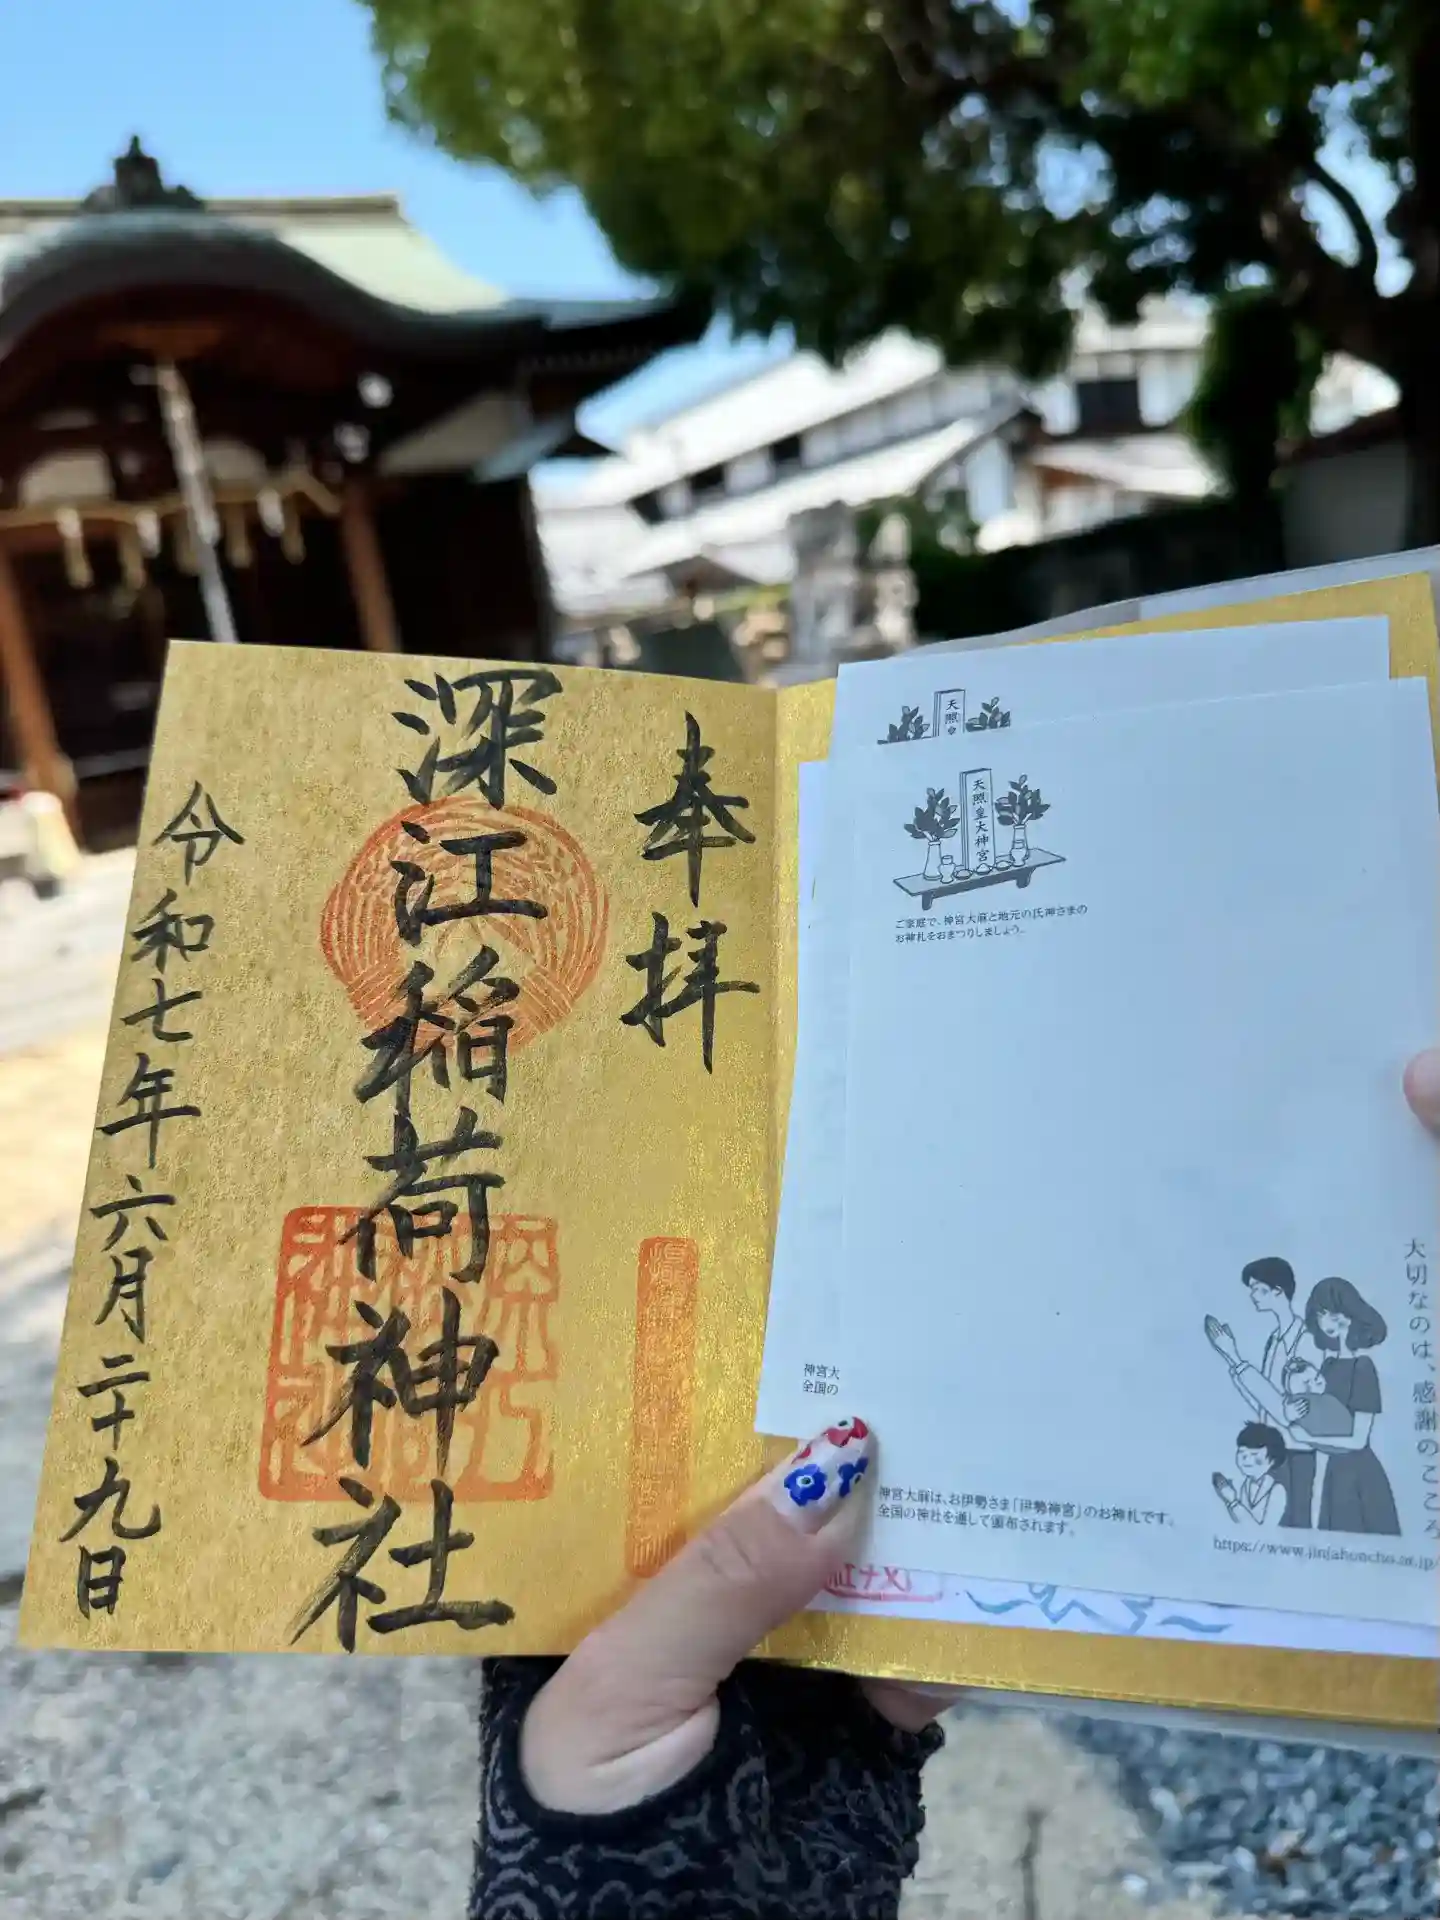 奉拝
深江稲荷神社
令和七年六月二十九日
天照皇
天照皇大神宮
ご家庭で、神宮大麻と地元の氏神さまの
お神札をおまつりしましょう。
大切なのは、感謝のこころ
神宮大
全国の
神宮大麻は、お伊勢さま「伊勢神宮」のお神札です。
全国の神社を通して頒布されます。
https://www.jinjahoncho.or.jp/